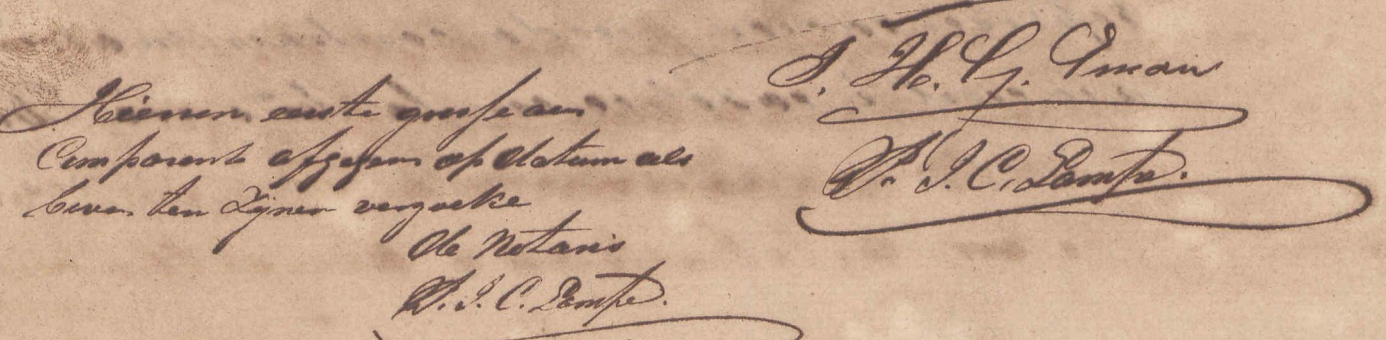 Hiervan eerste grosse aan
Comparent afgegeven op datum als
boven ten zijnen verzoeke
de Notaris
P. J. C. Lampe.
J. H. G. Eman
P. J. C. Lampe.